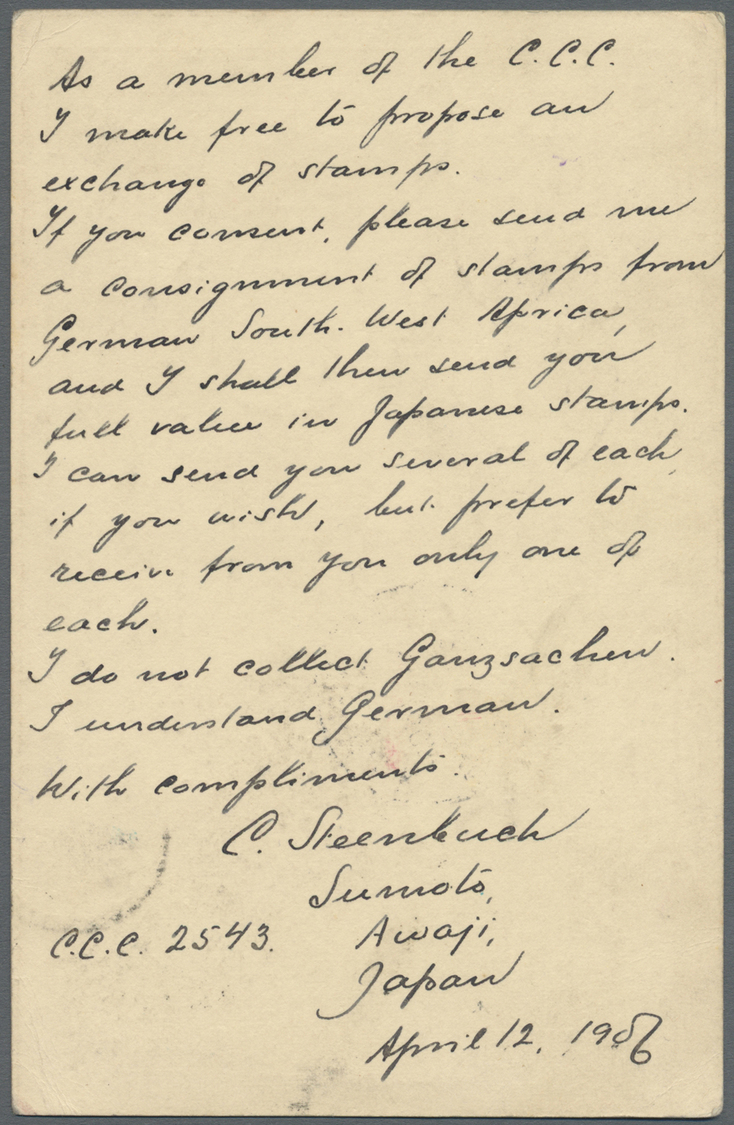 As a member of the C.C.C.
I make free to propose an
exchange of stamps.
If you consent, please send me
a consignment of stamps from
German South-West Africa,
and I shall then send you
full value in Japanese stamps.
I can send you several of each,
if you wish, but prefer to
receive from you only one of
each.
I do not collect Ganzsachen.
I understand German.
With compliments.
C. Steenbuch
Sumoto,
C.C.C. 2543. Awaji,
Japan
April 12, 1906